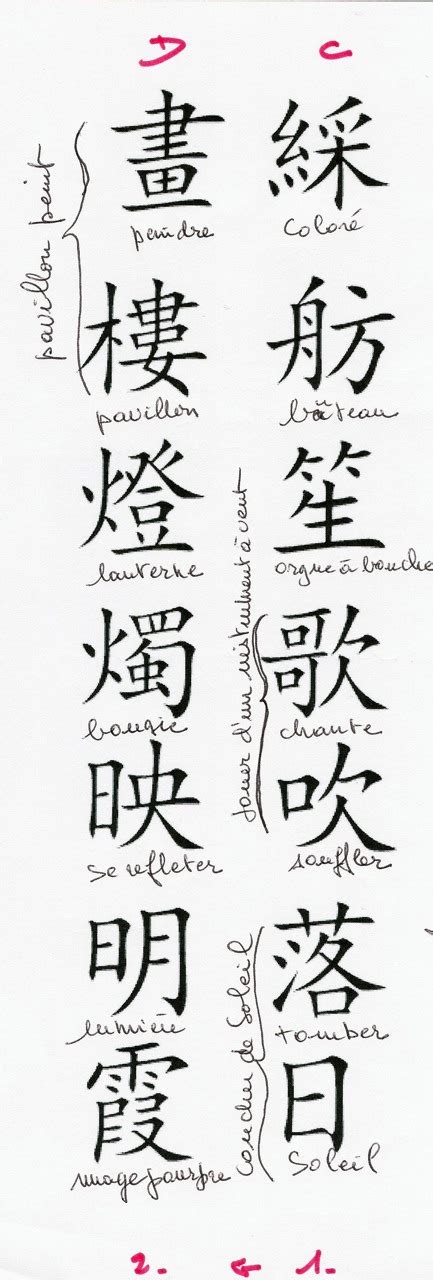 C
綵
Coloré
舫
bâteau
笙
orgue à bouche
歌
chante
吹
souffler
jouer d'un instrument à vent
落
tomber
日
Soleil
coucher de Soleil
1.
←
D
畫
peindre
樓
pavillon
pavillon peint
燈
lanterne
燭
bougie
映
se refleter
明
lumière
霞
nuage pourpre
2.